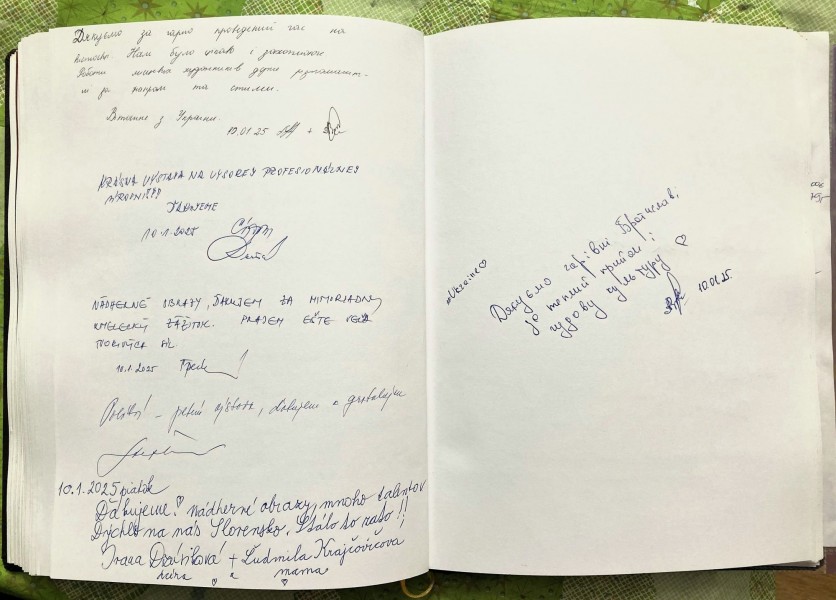 Дякуємо за гарно проведений час на
виставці. Нам було цікаво і захопливо.
Роботи митців художників дуже різноманіт-
ні за жанром та стилем.
Вітання з України.
10.01.25
KRÁSNA VÝSTAVA NA VYSOKEJ PROFESIONÁLNEJ
ĎAKUJEME
10.1.2025
NÁDHERNÉ OBRAZY, ĎAKUJEM ZA MIMORIADNY
UMELECKÝ ZÁŽITOK. PRAJEM EŠTE VEĽA
TVORIVÝCH
10.1.2025
výstava, ďakujeme a gratulujem
10.1.2025 piatok
Ďakujeme! nádherné obrazy, mnoho talentov
Dýchlo na nás Slovensko. Stálo to zato!!
Ivana + Ľudmila Krajčovičová
dcéra a mama
Ukraine
Дякуємо чарівній Братиславі
за теплий прийом і
чудову культуру
10.01.25.